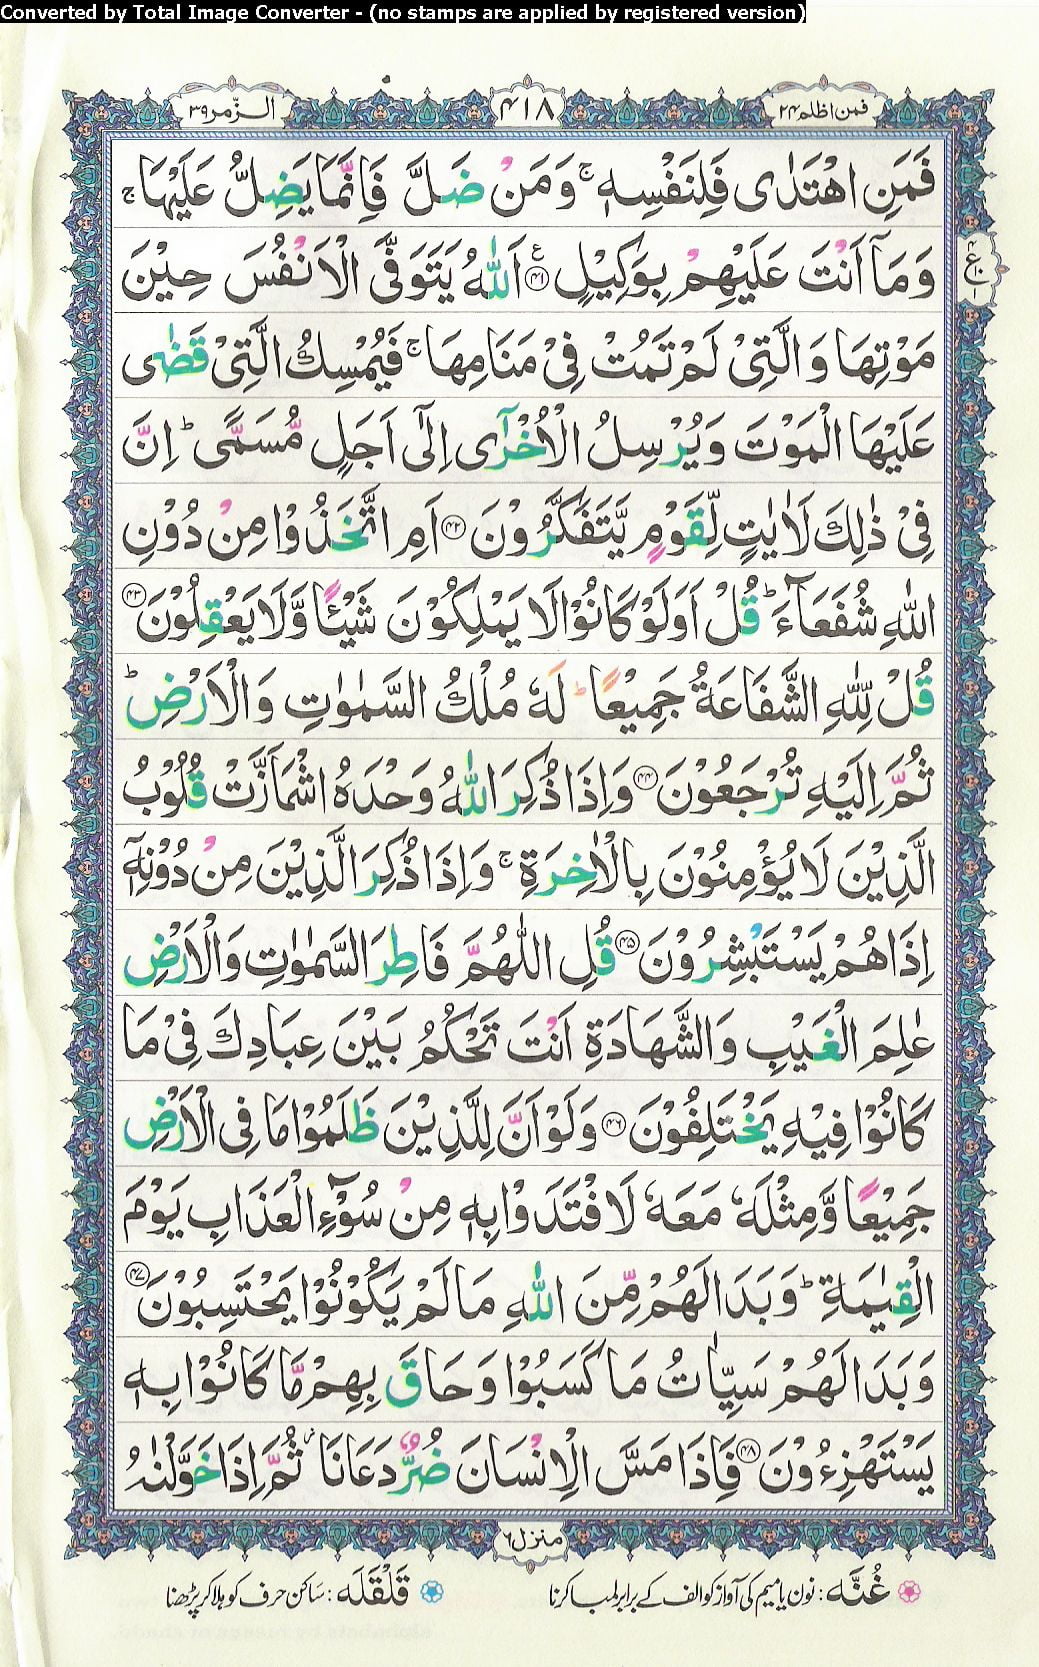 Converted by Total Image Converter - (no stamps are applied by registered version)
فمن اظلم ٢٤
٤١٨
الزّمر ٣٩
فَمَنِ اهْتَدٰى فَلِنَفْسِهٖ ۚ وَمَنْ ضَلَّ فَاِنَّمَا يَضِلُّ عَلَيْهَا ۚ
وَمَاۤ اَنْتَ عَلَيْهِمْ بِوَكِيْلٍ ؑ ﴿٤١﴾ اَللّٰهُ يَتَوَفَّى الْاَنْفُسَ حِيْنَ
ع
٤
١٠
١
مَوْتِهَا وَالَّتِيْ لَمْ تَمُتْ فِيْ مَنَامِهَا ۚ فَيُمْسِكُ الَّتِيْ قَضٰى
عَلَيْهَا الْمَوْتَ وَيُرْسِلُ الْاُخْرٰۤى اِلٰۤى اَجَلٍ مُّسَمًّى ؕ اِنَّ
فِيْ ذٰلِكَ لَاٰيٰتٍ لِّقَوْمٍ يَّتَفَكَّرُوْنَ ﴿٤٢﴾ اَمِ اتَّخَذُوْا مِنْ دُوْنِ
اللّٰهِ شُفَعَآءَ ؕ قُلْ اَوَلَوْ كَانُوْا لَا يَمْلِكُوْنَ شَيْـًٔا وَّلَا يَعْقِلُوْنَ ﴿٤٣﴾
قُلْ لِّلّٰهِ الشَّفَاعَةُ جَمِيْعًا ؕ لَهٗ مُلْكُ السَّمٰوٰتِ وَالْاَرْضِ ؕ
ثُمَّ اِلَيْهِ تُرْجَعُوْنَ ﴿٤٤﴾ وَاِذَا ذُكِرَ اللّٰهُ وَحْدَهُ اشْمَاَزَّتْ قُلُوْبُ
الَّذِيْنَ لَا يُؤْمِنُوْنَ بِالْاٰخِرَةِ ۚ وَاِذَا ذُكِرَ الَّذِيْنَ مِنْ دُوْنِهٖۤ
اِذَا هُمْ يَسْتَبْشِرُوْنَ ﴿٤٥﴾ قُلِ اللّٰهُمَّ فَاطِرَ السَّمٰوٰتِ وَالْاَرْضِ
عٰلِمَ الْغَيْبِ وَالشَّهَادَةِ اَنْتَ تَحْكُمُ بَيْنَ عِبَادِكَ فِيْ مَا
كَانُوْا فِيْهِ يَخْتَلِفُوْنَ ﴿٤٦﴾ وَلَوْ اَنَّ لِلَّذِيْنَ ظَلَمُوْا مَا فِي الْاَرْضِ
جَمِيْعًا وَّمِثْلَهٗ مَعَهٗ لَافْتَدَوْا بِهٖ مِنْ سُوْٓءِ الْعَذَابِ يَوْمَ
الْقِيٰمَةِ ؕ وَبَدَا لَهُمْ مِّنَ اللّٰهِ مَا لَمْ يَكُوْنُوْا يَحْتَسِبُوْنَ ﴿٤٧﴾
وَبَدَا لَهُمْ سَيِّاٰتُ مَا كَسَبُوْا وَحَاقَ بِهِمْ مَّا كَانُوْا بِهٖ
يَسْتَهْزِءُوْنَ ﴿٤٨﴾ فَاِذَا مَسَّ الْاِنْسَانَ ضُرٌّ دَعَانَا ؗ ثُمَّ اِذَا خَوَّلْنٰهُ
منزل ٦
غُنَّہ : نون یا میم کی آواز کو الف کے برابر لمبا کرنا
قَلْقَلَہ : ساکن حرف کو ہلا کر پڑھنا